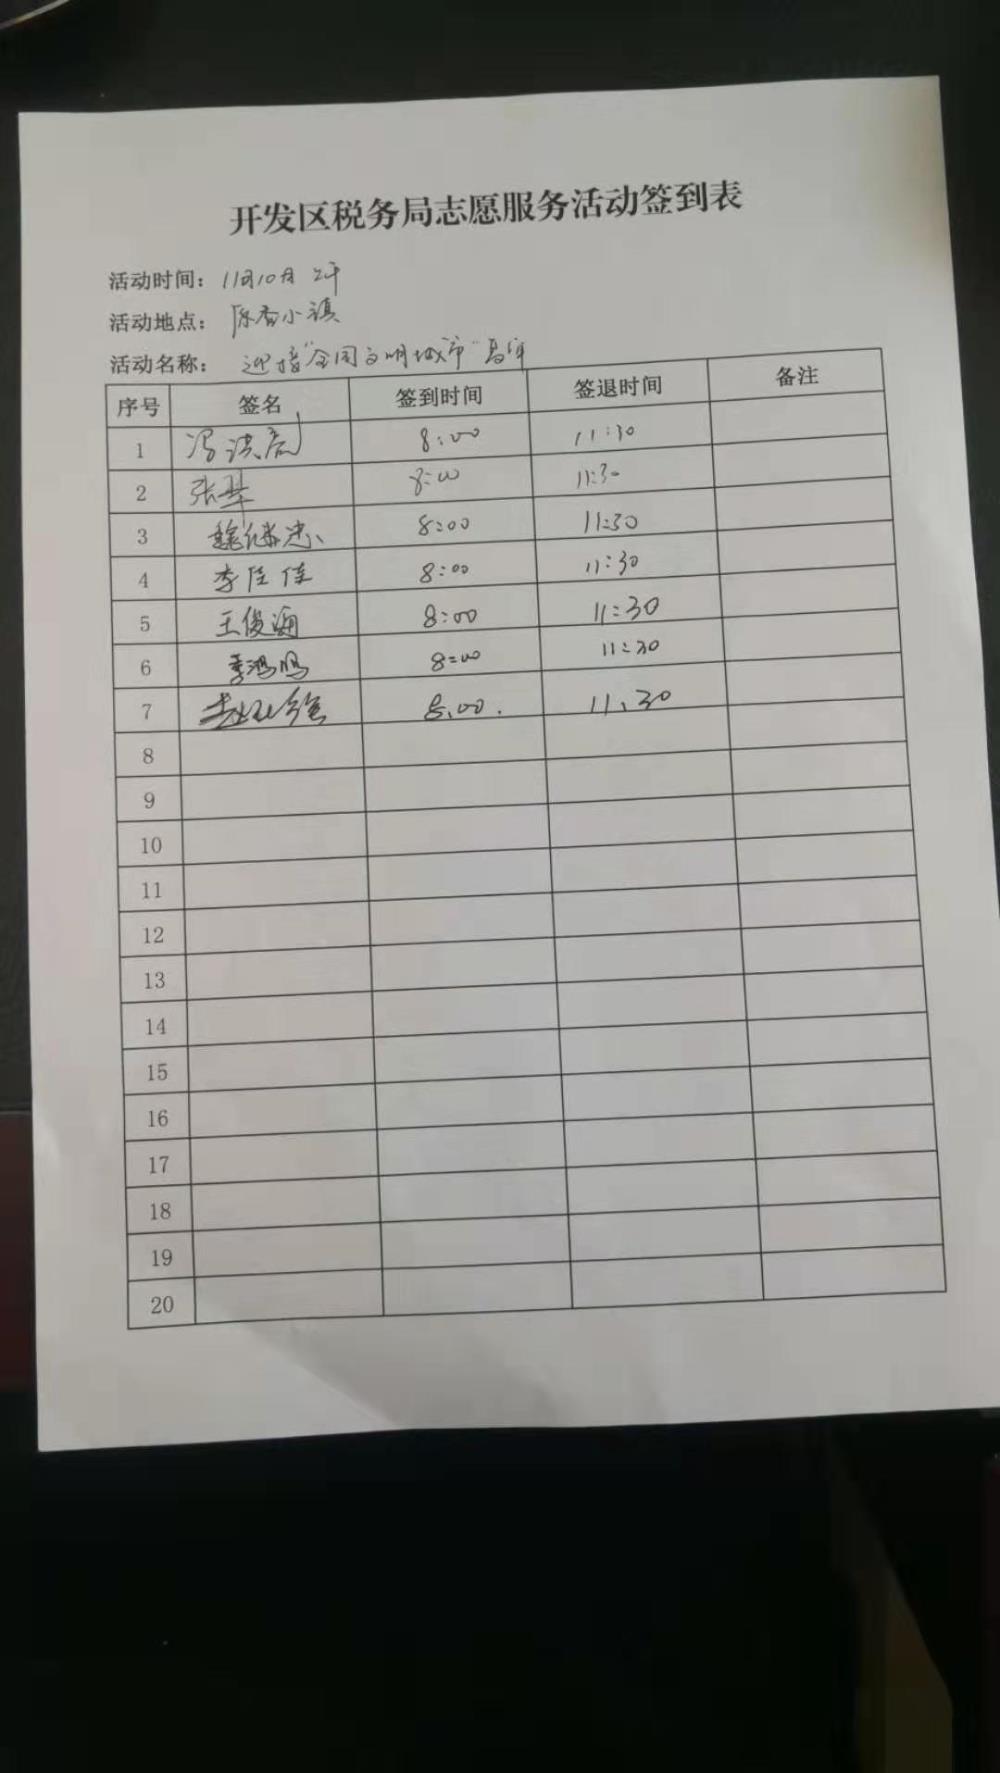 开发区税务局志愿服务活动签到表
活动时间：11月10日 上午
活动地点：原香小镇
活动名称：迎接"全国文明城市"
序号 签名 签到时间 签退时间 备注
1 8:00 11:30
2 张 8:00 11:30
3 魏继忠 8:00 11:30
4 李佳佳 8:00 11:30
5 王俊涵 8:00 11:30
6 季鸿鸣 8:00 11:30
7 8:00. 11:30
8
9
10
11
12
13
14
15
16
17
18
19
20